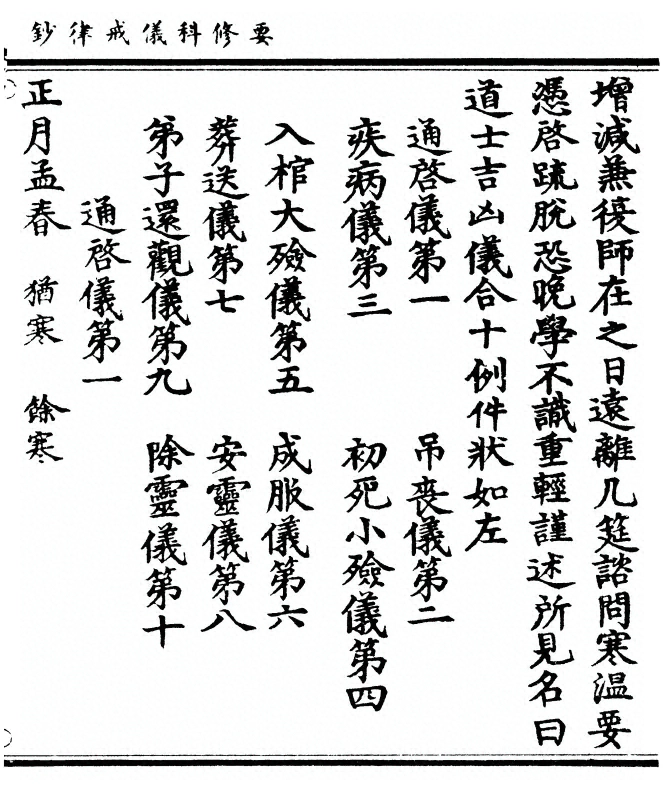 要修科儀戒律鈔
增減兼復師在之日遠離几筵諮問寒温要
憑啓䟽脫恐晚學不識重輕謹述所見名曰
道士吉凶儀合十例件狀如左
通啓儀第一　吊喪儀第二
疾病儀第三　初死小殮儀第四
入棺大殮儀第五　成服儀第六
葬送儀第七　安靈儀第八
第子還觀儀第九　除靈儀第十
通啓儀第一
正月孟春　猶寒　餘寒